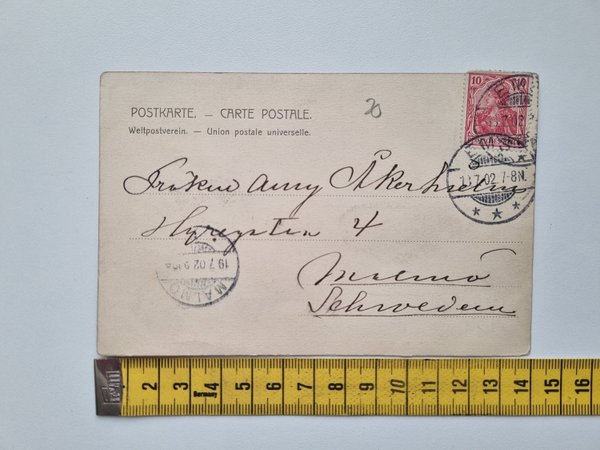 POSTKARTE. — CARTE POSTALE.
Weltpostverein. — Union postale universelle.
20
10
7.02.7-8N.
Fröken Amy Åkerholm
4
Malmö
Schweden
19.7.02
MALMÖ
2 3 4 5 6 7 8 9 10 11 12 13 14 15 16
Germany